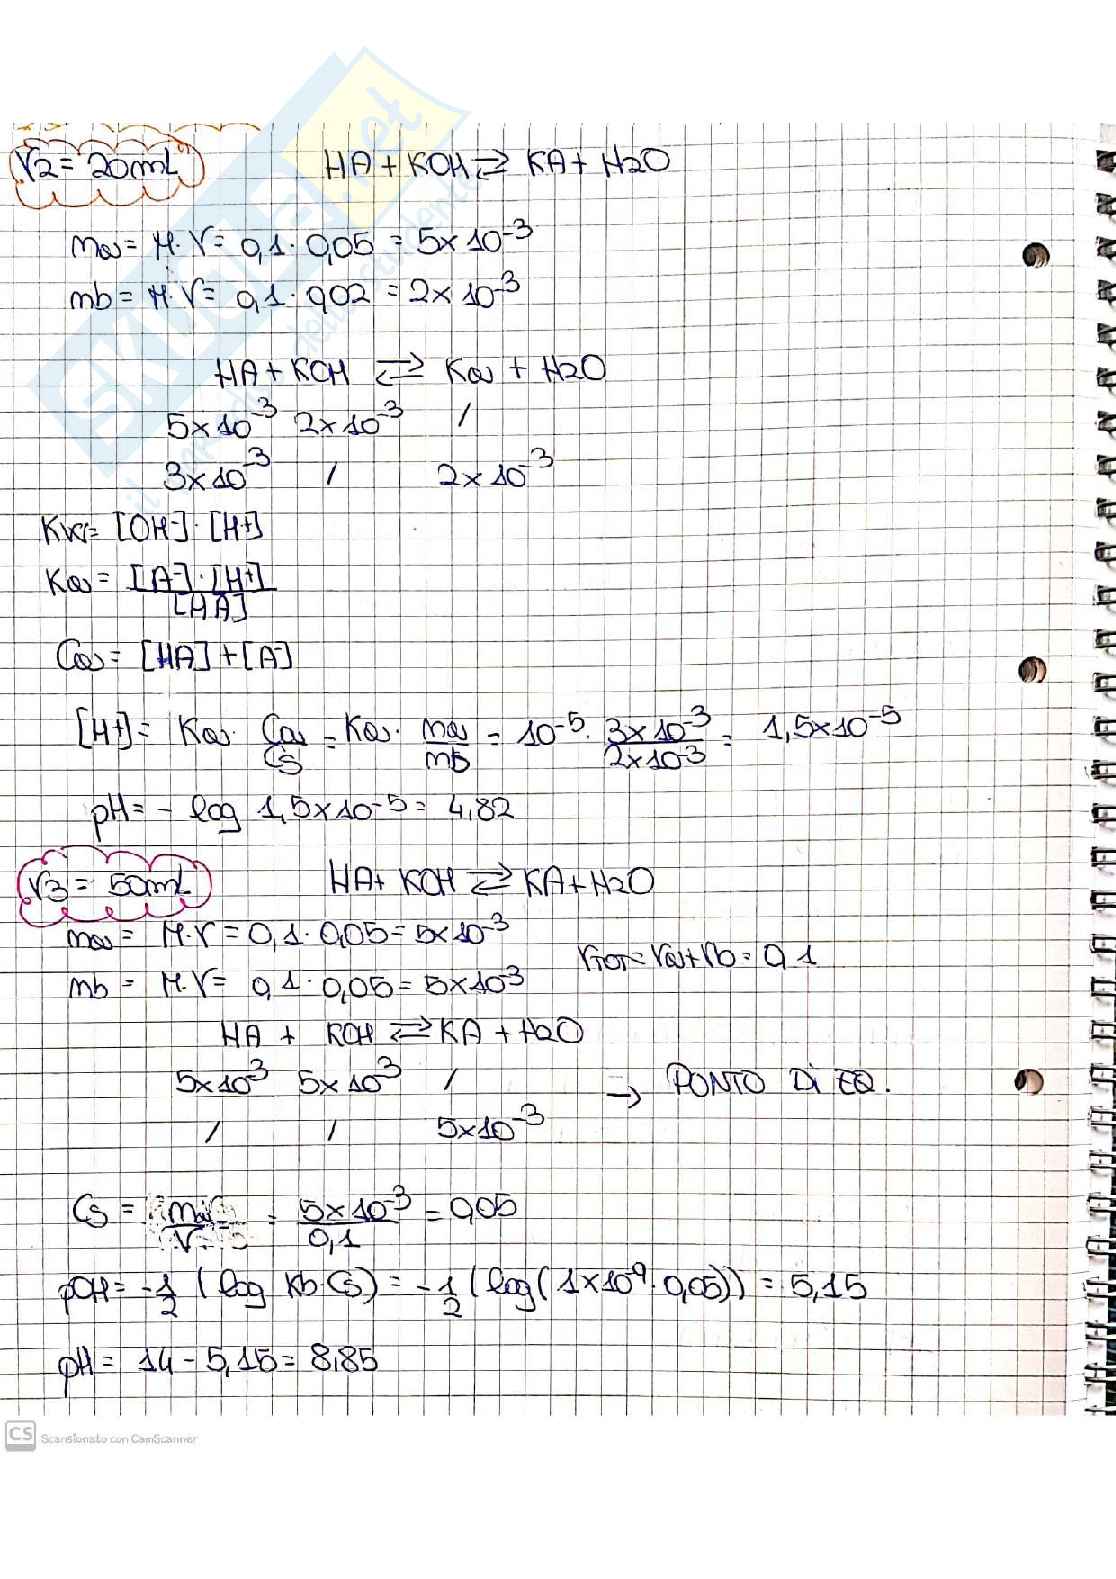 V2 = 20mL HA + KOH ⇄ KA + H2O
na = M·V = 0,1 · 0,05 = 5x10⁻³
nb = M·V = 0,1 · 0,02 = 2x10⁻³
HA + KOH ⇄ Ka + H2O
5x10⁻³ 2x10⁻³ /
3x10⁻³ / 2x10⁻³
Kw = [OH⁻]·[H+]
Ka = [A⁻]·[H+] / [HA]
Ca = [HA] + [A⁻]
[H+] = Ka · Ca/Cs = Ka · na/nb = 10⁻⁵ · 3x10⁻³/2x10⁻³ = 1,5x10⁻⁵
pH = - log 1,5x10⁻⁵ = 4,82
V3 = 50mL HA + KOH ⇄ KA + H2O
na = M·V = 0,1 · 0,05 = 5x10⁻³
VTOT = Va + Vb = 0,1
nb = M·V = 0,1 · 0,05 = 5x10⁻³
HA + KOH ⇄ KA + H2O
5x10⁻³ 5x10⁻³ / → PONTO Di EQ.
/ / 5x10⁻³
Cs = na/V = 5x10⁻³/0,1 = 0,05
pOH = -1/2 (log Kb·Cs) = -1/2 (log(1x10⁻⁹·0,05)) = 5,15
pH = 14 - 5,15 = 8,85
CS Scansionato con CamScanner